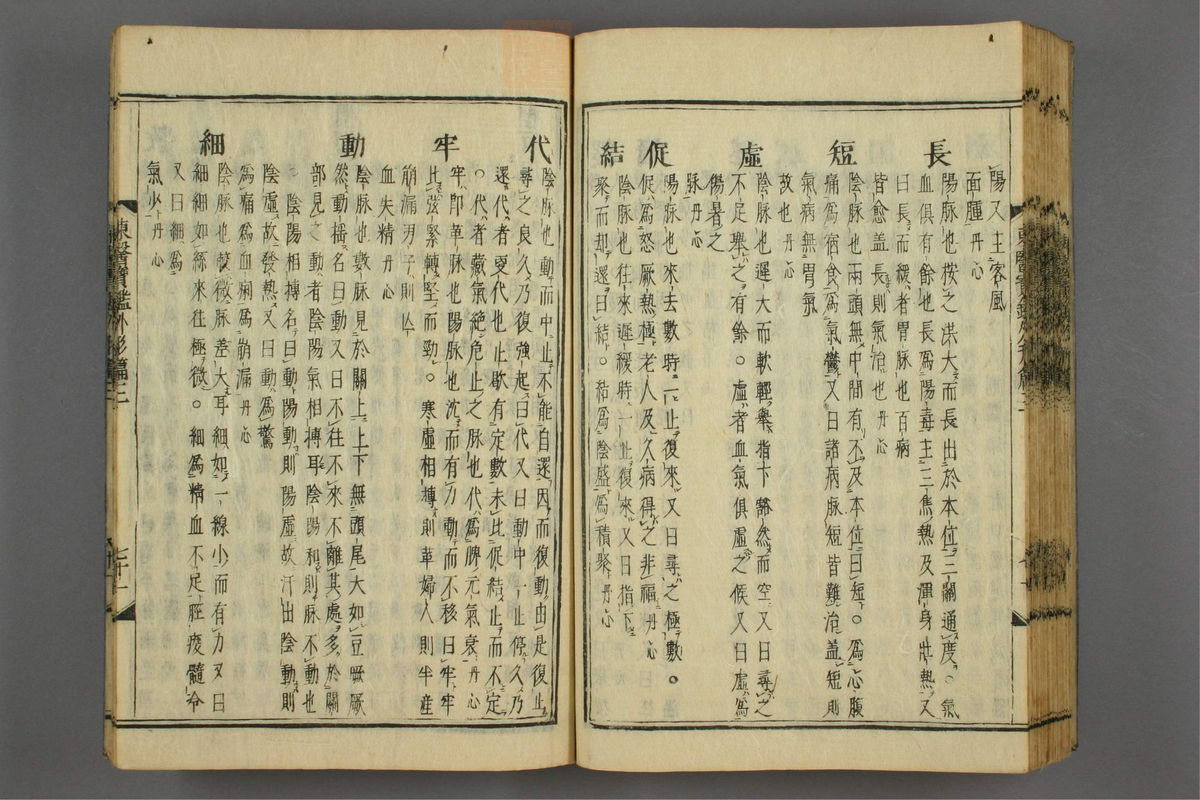 陽又主客風
面腫丹心
長
陽脉也按之洪大而長出於本位三關通度○氣
血俱有餘也長爲陽毒主三焦熱及渾身壯熱又
曰長而緩者胃脉也百病
皆愈盖長則氣治也丹心
短
陰脉也兩頭無中間有不及本位曰短○爲心腹
痛爲宿食爲氣鬱又曰諸病脉短皆難治盖短則
氣病無胃氣
故也丹心
虛
陰脉也遲大而軟輕擧指下豁然而空又曰尋之
不足擧之有餘○虛者血氣俱虛之候又曰虛爲
傷暑之
脉丹心
促
陽脉也來去數時一止復來又曰尋之極數○
促爲怒厥熱極老人及久病得之非福丹心
結
陰脉也往來遲緩時一止復來又曰指下
聚而却還曰結○結爲陰盛爲積聚丹心
代
陰脉也動而中止不能自還因而復動由是復止
尋之良久乃復強起曰代又曰動中一止停久乃
還代者更代也止歇有定數未比促結止而不定
○代者藏氣絶危止之脉也代爲脾元氣衰丹心
牢
牢卽革脉也陽脉也沈而有力動而不移曰牢牢
比弦緊轉堅而勁○寒虛相搏則革婦人則半産
崩漏男子則亾
血失精丹心
動
陰脉也數脉見於關上上下無頭尾大如豆厥厥
然動搖名曰動又曰不往不來不離其處多於關
部見之動者陰陽氣相搏耳陰陽和則脉不動也
○陰陽相搏名曰動陽動則陽虛故汗出陰動則
陰虛故發熱又曰動爲驚
爲痛爲血痢爲崩漏丹心
細
陰脉也較微脉差大耳細如一線小而有力又曰
細細如絲來往極微○細爲精血不足脛痠髓冷
又曰細爲
氣少丹心
東醫寶鑑外形篇三
七十一